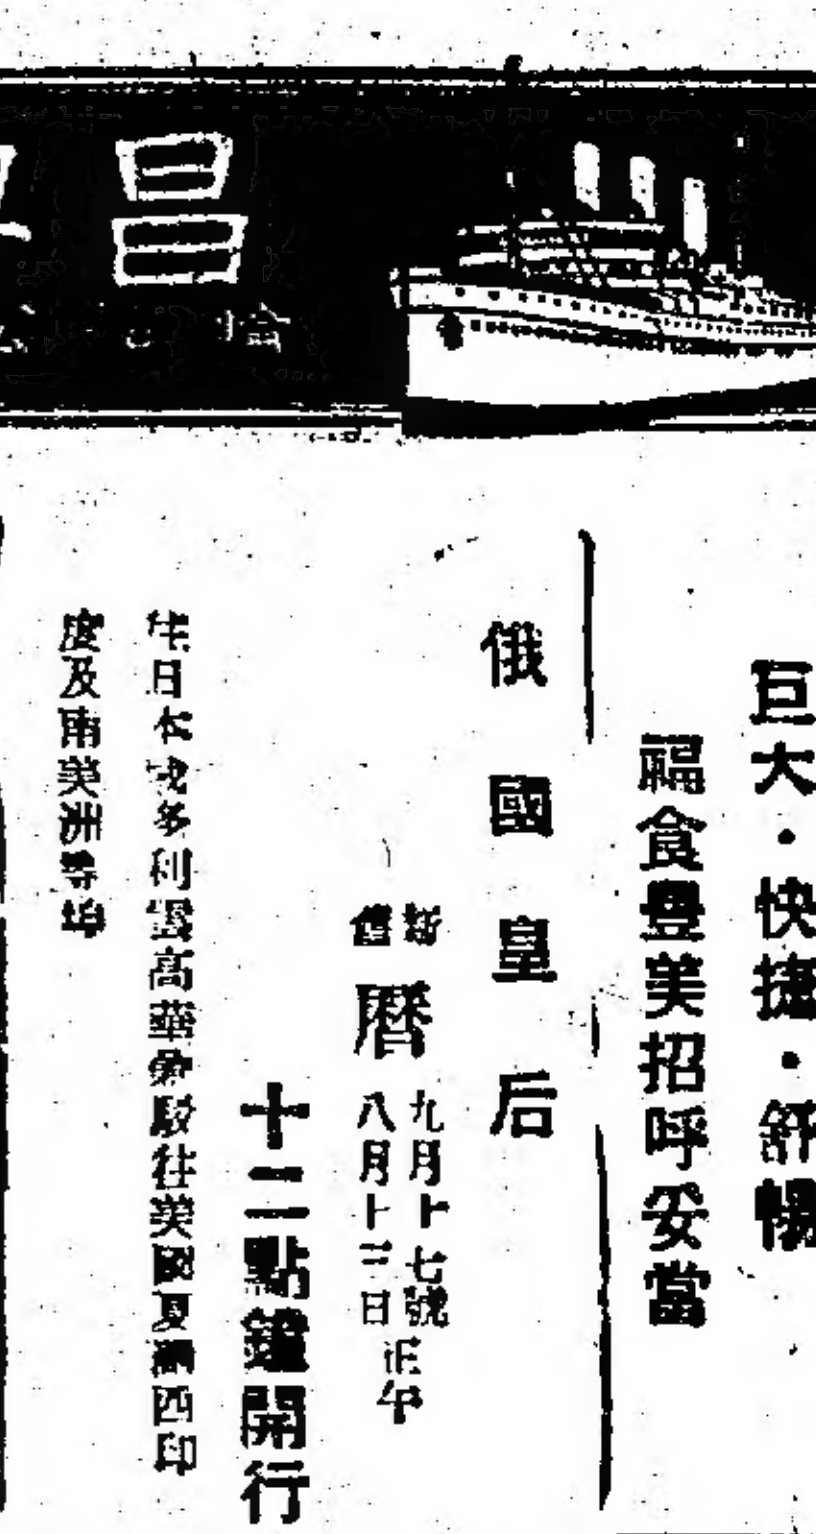 昌
巨大・快捷・舒暢
福食豐美招呼妥當
俄國皇后
新
舊
曆
九月十七號
八月十三日
正午
十二點鐘開行
往日本域多利雲高華 駁往美國夏灣西印
度及南美洲等埠